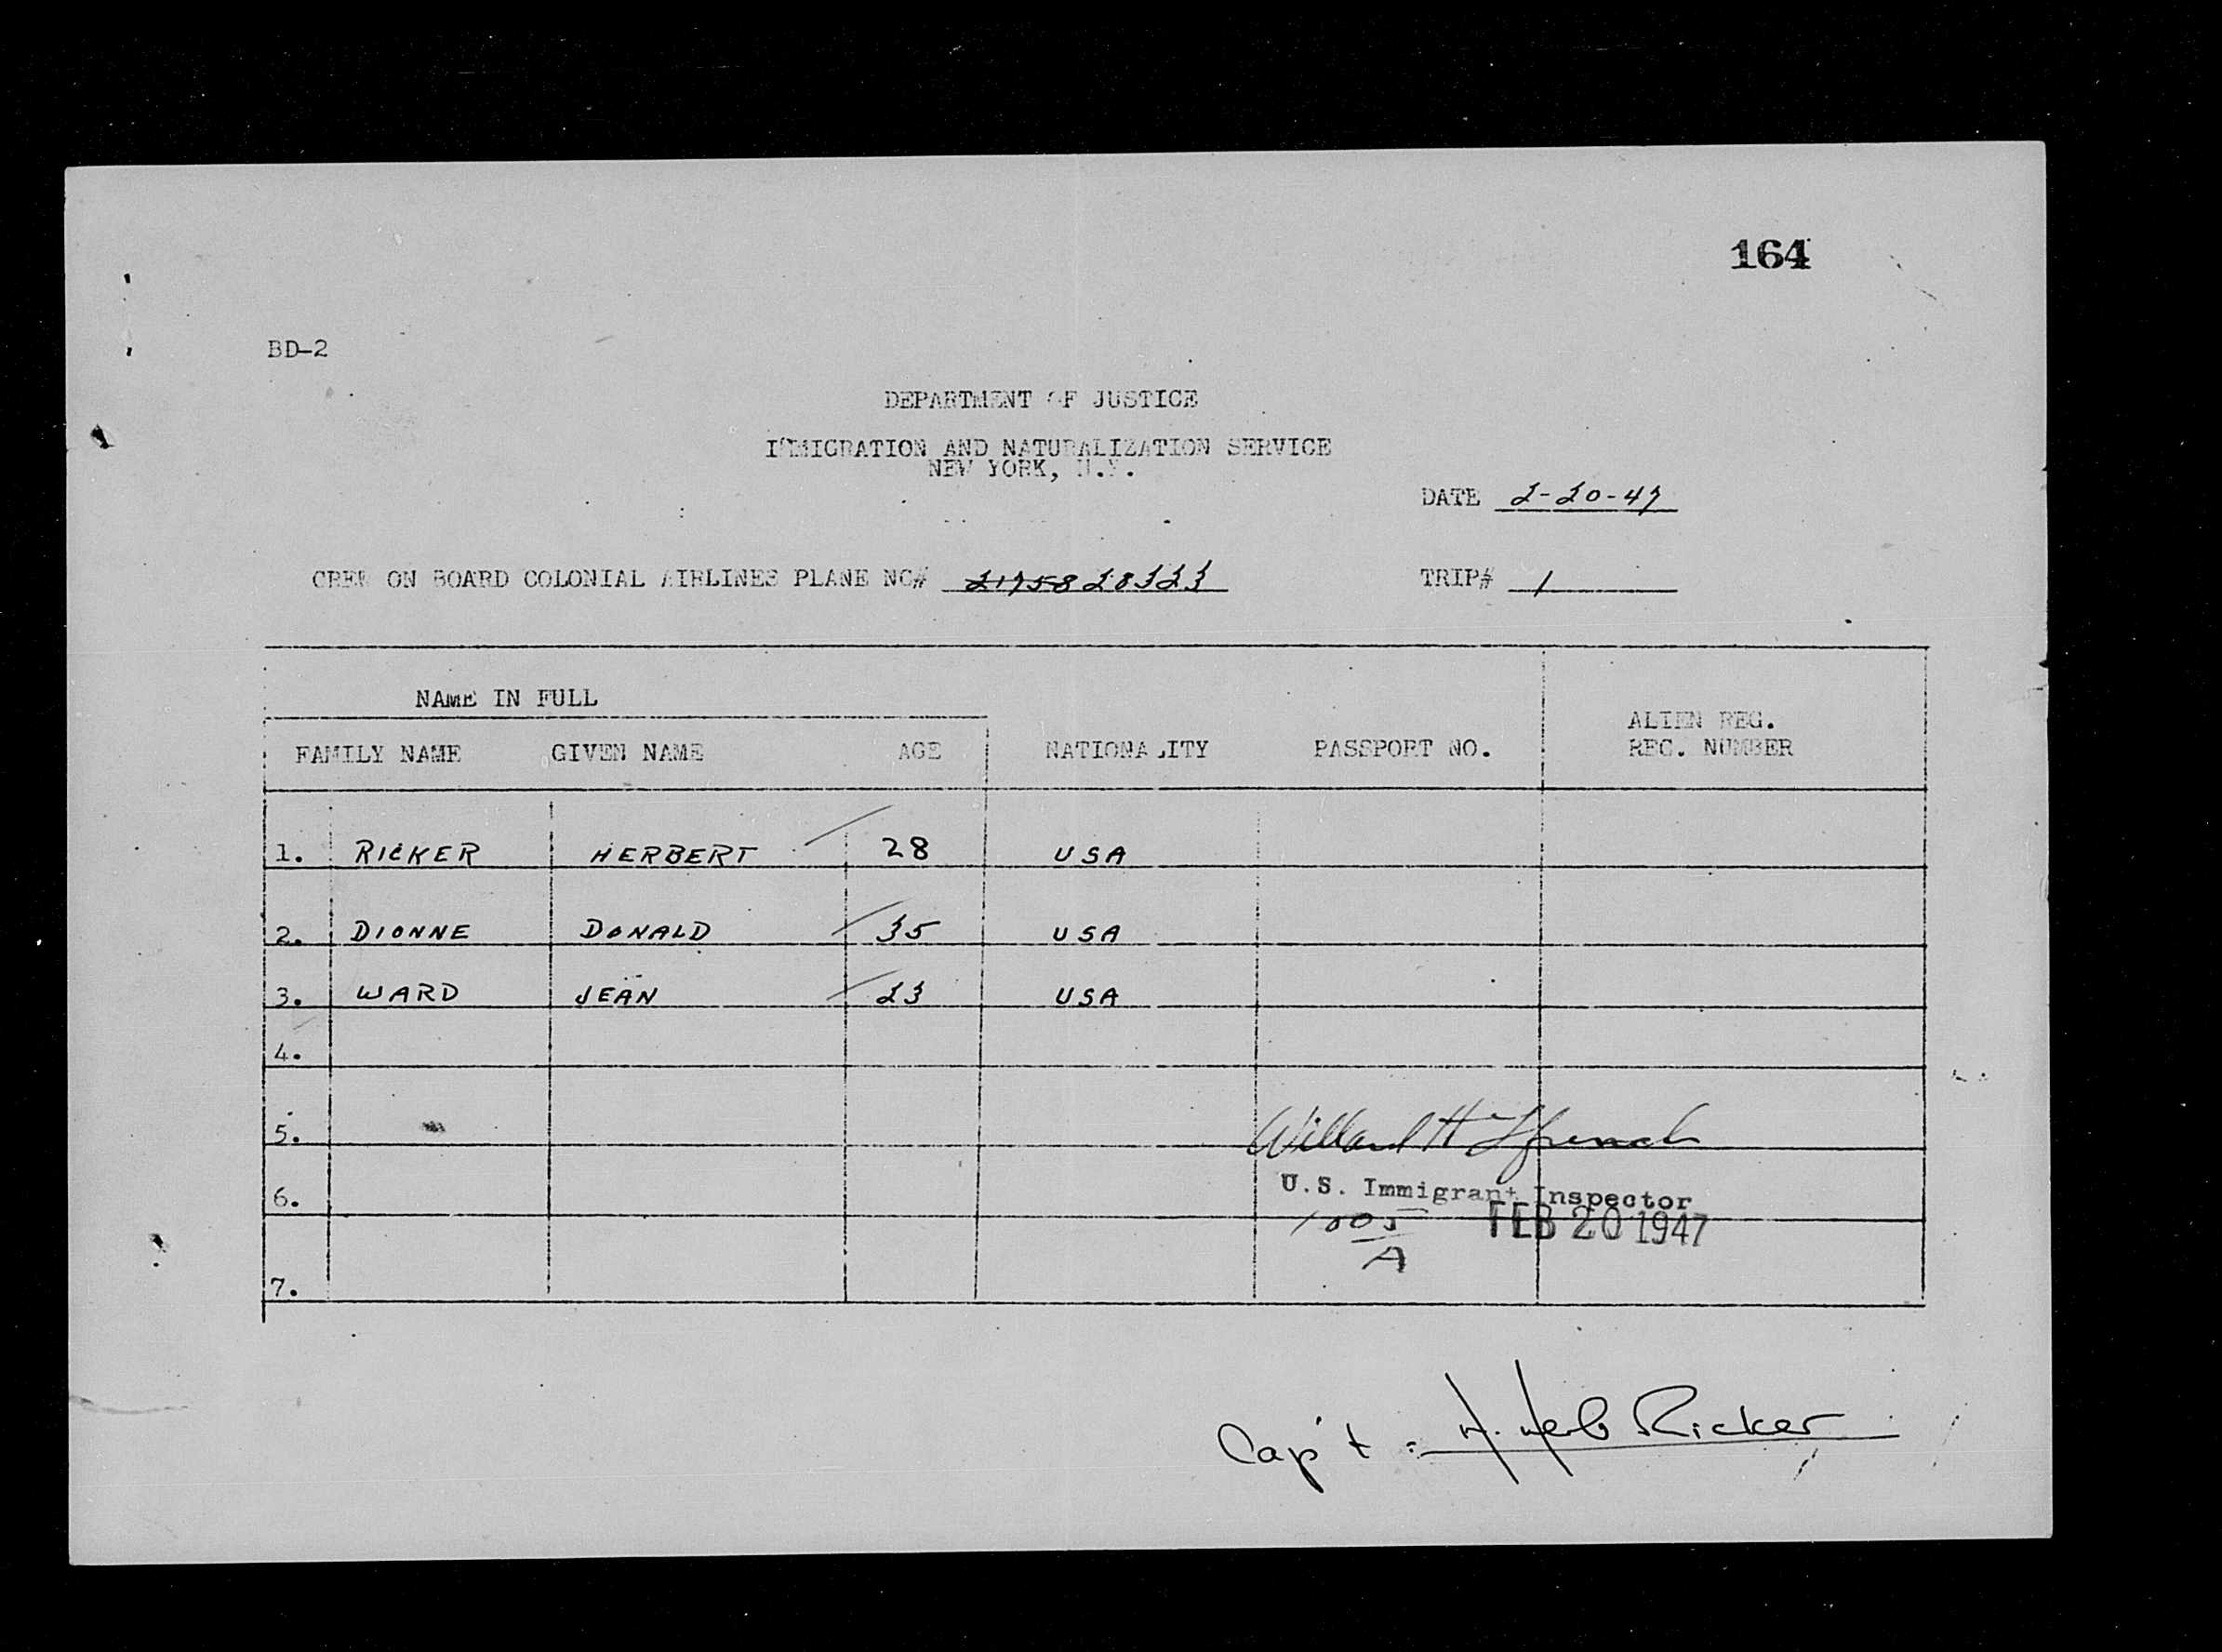 164
BD-2
DEPARTMENT OF JUSTICE
IMMIGRATION AND NATURALIZATION SERVICE
NEW YORK, N.Y.
DATE 2-20-47
CREW ON BOARD COLONIAL AIRLINES PLANE NC# 21758 28323
TRIP# 1
NAME IN FULL
FAMILY NAME GIVEN NAME AGE NATIONALITY PASSPORT NO. ALIEN REG. REC. NUMBER
1. RICKER HERBERT 28 USA
2. DIONNE DONALD 35 USA
3. WARD JEAN 23 USA
4.
5.
Willard H
U.S. Immigrant Inspector
6.
1005 FEB 20 1947
A
7.
Cap't: H. Herb Ricker